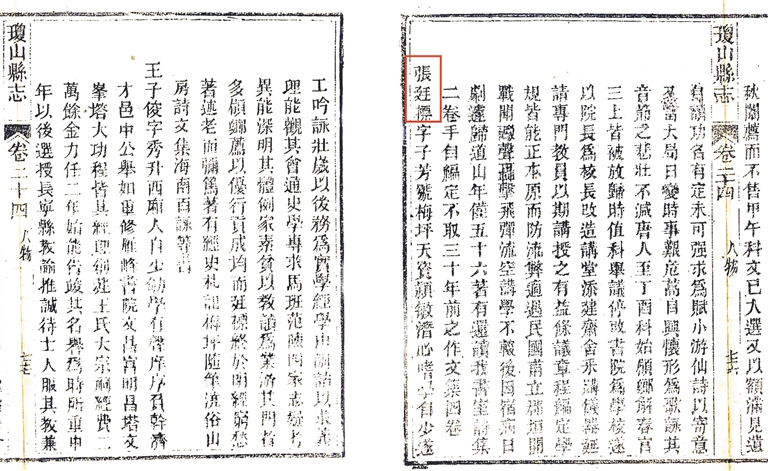 秋闈薦而不售甲午科文已入選又以額滿見遺
自謂功名有定未可强求爲賦小游仙詩以寄意
及當大局日變時事艱危蒿目興懷形爲歌詠其
音節之悲壯不減唐人至丁酉科始領鄉解春官
三上皆被放歸時值科舉議停改書院爲學校遂
以院長爲校長改造講堂添建齋舍采購儀器延
請專門教員以期講授之有益條議章程編定學
規皆能正本原而防流弊適遇民國甫立郡垣開
戰聞礮聲轟擊飛彈流空講學不輟後因宿病日
劇遂歸道山年僅五十六著有還讀我書室詩集
二卷手自編定不取三十年前之作文集四卷
張廷標字子芳號梅坪天資頴敏濳心嗜學自少遂
瓊山縣志 卷二十四 人物
工吟詠壯歲以後務爲實學經學由訓詁以求義
理能觀其會通史學專求馬班范陳四家志疑考
異能深明其體例家素貧以教讀爲業游其門者
多領鄉薦以優行貢成均而廷標終於明經窮愁
著述老而彌篤著有經史札記梅坪隨筆流俗山
房詩文集海南百詠等書
王子俊字秀升西廂人自少勤學有聲庠序負幹濟
才邑中公舉如重修雁峰書院文昌宮明昌塔文
峯塔大功程皆其經理創建王氏大宗祠經費二
萬餘金力任二年始能告竣其名譽爲時所重中
年以後選授長寧縣教諭推誠待士人服其教兼
瓊山縣志 卷二十四 人物